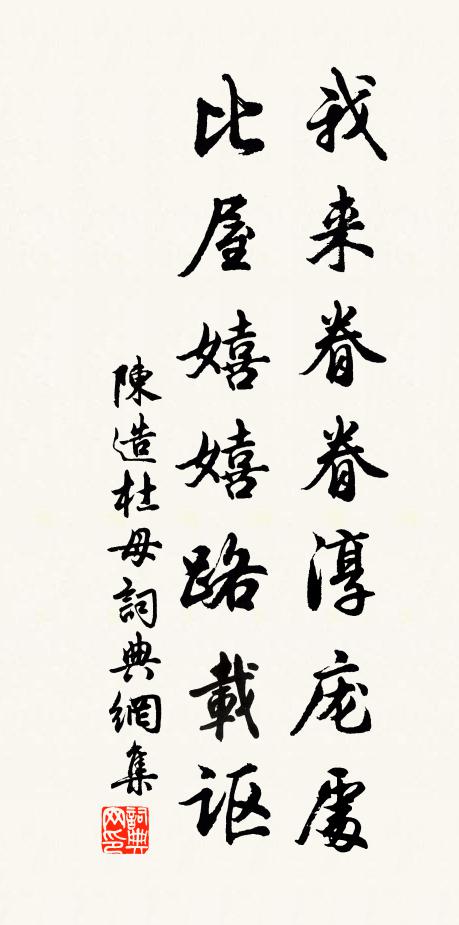 我来眷眷淳庞處
比屋嬉嬉路載讴
陳造杜母詞典網集
詞典网印